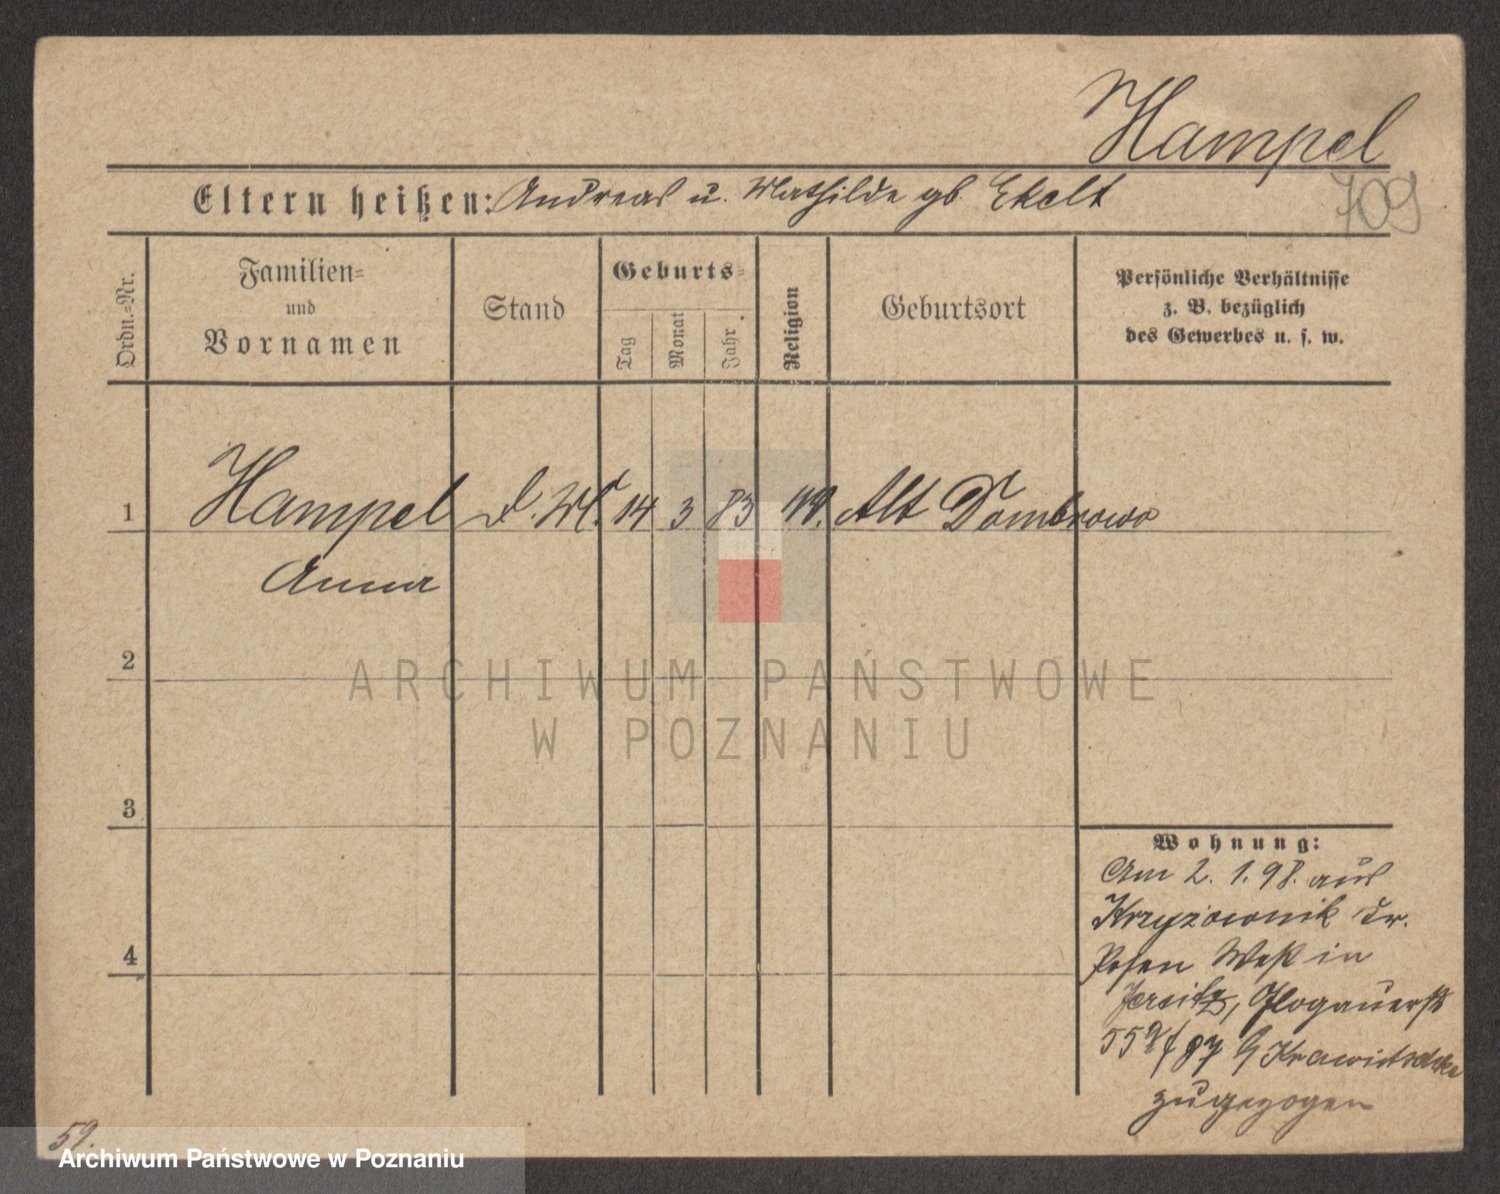 Hampel
709
Eltern heißen: Andreas u. Mathilde gb Ekelt
Ordn.-Nr.
Familien-
und
Vornamen
Stand
Geburts-
Tag
Monat
Jahr
Religion
Geburtsort
Persönliche Verhältnisse
z. B. bezüglich
des Gewerbes u. s. w.
1 Hampel 14 3 83 Alt Dombrowo
Anna
2
3
4
Wohnung:
Am 2. 1. 98. aus
Krzyżownik Kr.
Posen West in
Jersitz, Glogauerst
55 bei
zugezogen
59.
ARCHIWUM PAŃSTWOWE
W POZNANIU
Archiwum Państwowe w Poznaniu